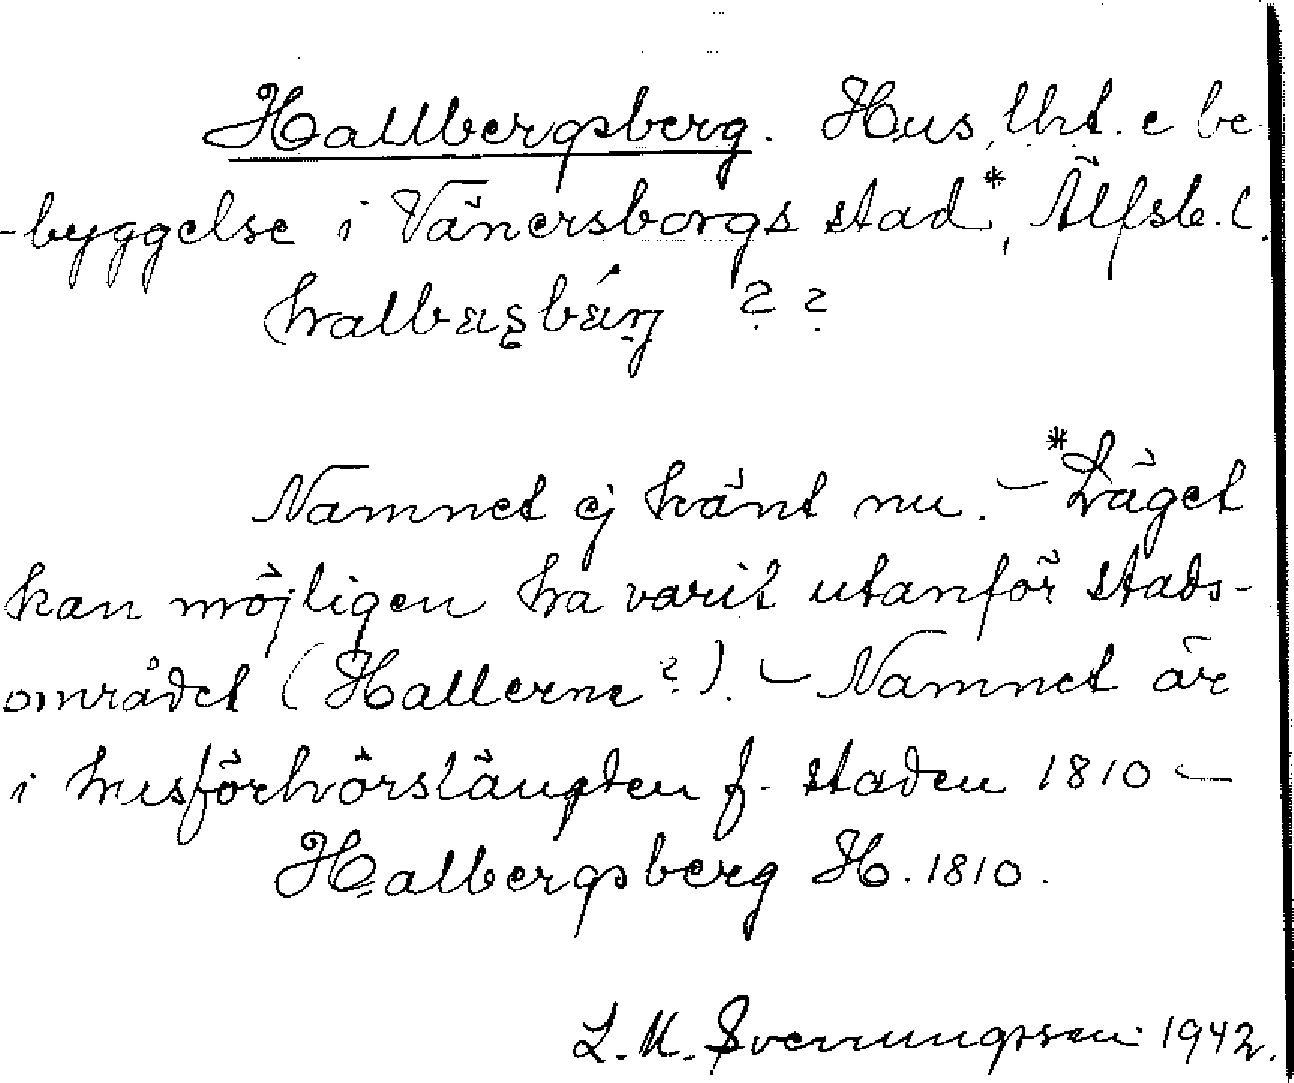 Hallbergsberg. Hus, lht. e be
-byggelse i Vänersborgs stad*, Älfsb. l.
halbæsbærg ? ?
Namnet ej känt nu. - *Läget
kan möjligen ha varit utanför stads-
området (Hallerne?). - Namnet är
i husförhörslängden f. staden 1810 -
Halbergsberg H. 1810.
L. M. Svenungsson 1942.